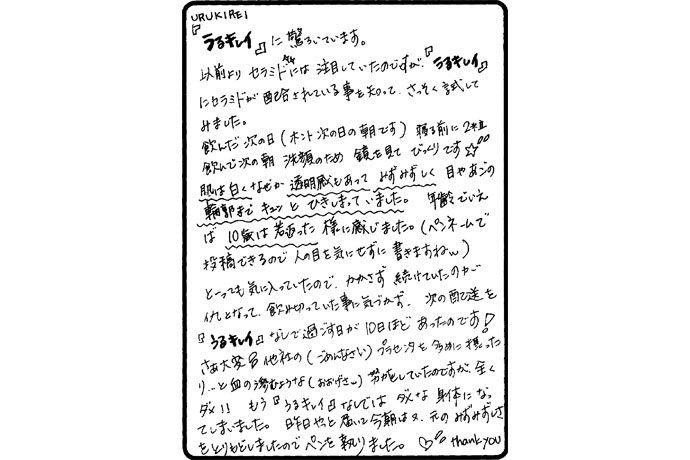 URUKIREI
『うるキレイ』に驚ろいています。
以前より セラミドには 注目していたのですが、『うるキレイ』
にセラミドが配合されている事を知って、さっそく試して
みました。
飲んだ次の日(ホント次の日の朝です) 寝る前に2粒
飲んで次の朝 洗顔のため 鏡を見て びっくりです☆
肌は白くなぜか 透明感もあって みずみずしく 目やあごの
輪郭まで キュッと ひきしまっていました。 年齢でいえ
ば 10歳は若返った 様に感じました。(ペンネームで
投稿できるので 人の目を気にせずに 書きますねw)
とーっても気に入っていたので、かかさず 続けていたのが
仇となって、飲み切っていた事に気づかず、 次の配送を
『うるキレイ』なしで過ごす日が 10日ほど あったのです!
さあ大変 他社の(ごめんなさい) プラセンタを多めに摂った
り…と血の滲むような(おおげさw) 努力をしていたのですが、全く
ダメ!! もう『うるキレイ』なしでは ダメな 身体になっ
てしまいました。 昨日やっと届いて今朝は 元のみずみずしさ
をとりもどしましたので ペンを執りました。♡ thank you